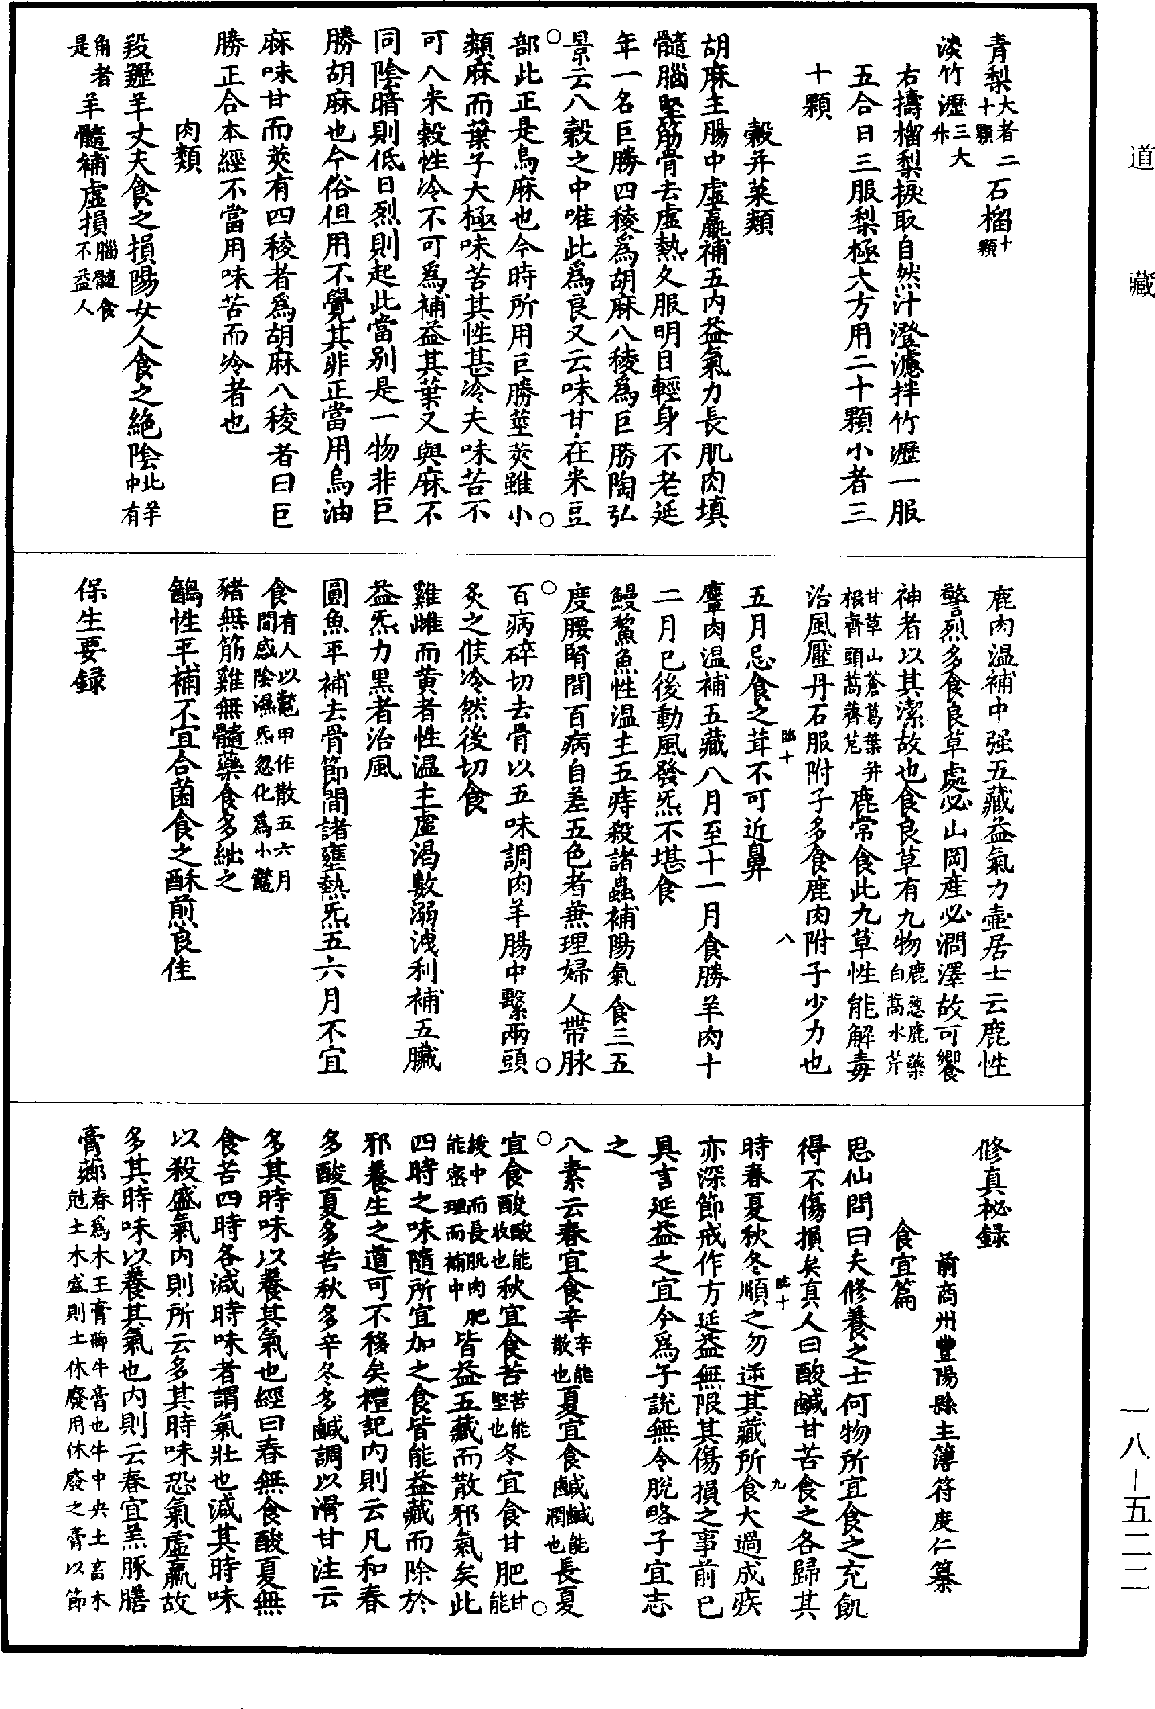 道藏
一八—五二二
青梨大者二十顆石榴十顆
淡竹瀝三大升
右擣榴梨捩取自然汁澄濾拌竹瀝一服
五合日三服梨極大方用二十顆小者三
十顆
穀并菜類
胡麻主腸中虛羸補五內益氣力長肌肉填
髓腦堅筋骨去虛熱久服明目輕身不老延
年一名巨勝四稜爲胡麻八稜爲巨勝陶弘
景云八穀之中唯此爲良又云味甘在米豆
部此正是烏麻也今時所用巨勝莖莢雖小
類麻而葉子大極味苦其性甚冷夫味苦不
可入米穀性冷不可爲補益其葉又與麻不
同陰暗則低日烈則起此當別是一物非巨
勝胡麻也今俗但用不覺其非正當用烏油
麻味甘而莢有四稜者爲胡麻八稜者曰巨
勝正合本經不當用味苦而冷者也
肉類
羖䍽羊丈夫食之損陽女人食之絕陰此羊中有
角者是羊髓補虛損腦髓食不益人
鹿肉溫補中强五藏益氣力壺居士云鹿性
警烈多食良草處必山岡產必澗澤故可饗
神者以其潔故也食良草有九物鹿葱鹿藥白蒿水芹
甘草山蒼葛葉并根齊頭蒿薺苨鹿常食此九草性能解毒
治風壓丹石服附子多食鹿肉附子少力也
五月忌食之茸不可近鼻
麞肉溫補五藏八月至十一月食勝羊肉十
二月已後動風發炁不堪食
鰻鱺魚性溫主五痔殺諸蟲補陽氣食三五
度腰腎間百病自差五色者兼理婦人帶脉
百病碎切去骨以五味調肉羊腸中繫兩頭
炙之候冷然後切食
雞雌而黃者性溫主虛渴數溺洩利補五臟
益炁力黑者治風
圓魚平補去骨節間諸壅熱炁五六月不宜
食有人以鼈甲作散五六月間感陰濕炁忽化爲小鼈
豬無筋雞無髓藥食多絀之
鶻性平補不宜合菌食之酥煎良佳
保生要録
修真祕録
前商州豐陽縣主簿符度仁纂
食宜篇
思仙問曰夫修養之士何物所宜食之充飢
得不傷損矣真人曰酸鹹甘苦食之各歸其
時春夏秋冬順之勿逆其藏所食大過成疾
亦深節戒作方延益無限其傷損之事前已
具言延益之宜今爲子說無令脫略子宜志
之
八素云春宜食辛辛能散也夏宜食鹹鹹能潤也長夏
宜食酸酸能收也秋宜食苦苦能堅也冬宜食甘肥甘能
緩中而長肌肉肥能密理而補中皆益五藏而散邪氣矣此
四時之味隨所宜加之食皆能益藏而除於
邪養生之道可不移矣禮記內則云凡和春
多酸夏多苦秋多辛冬多鹹調以滑甘注云
多其時味以養其氣也經曰春無食酸夏無
食苦四時各減時味者謂氣壯也減其時味
以殺盛氣內則所云多其時味恐氣虛羸故
多其時味以養其氣也內則云春宜羔豚膳
膏薌春爲木王膏薌牛膏也牛中央土畜木尅土木盛則土休廢用休廢之膏以節